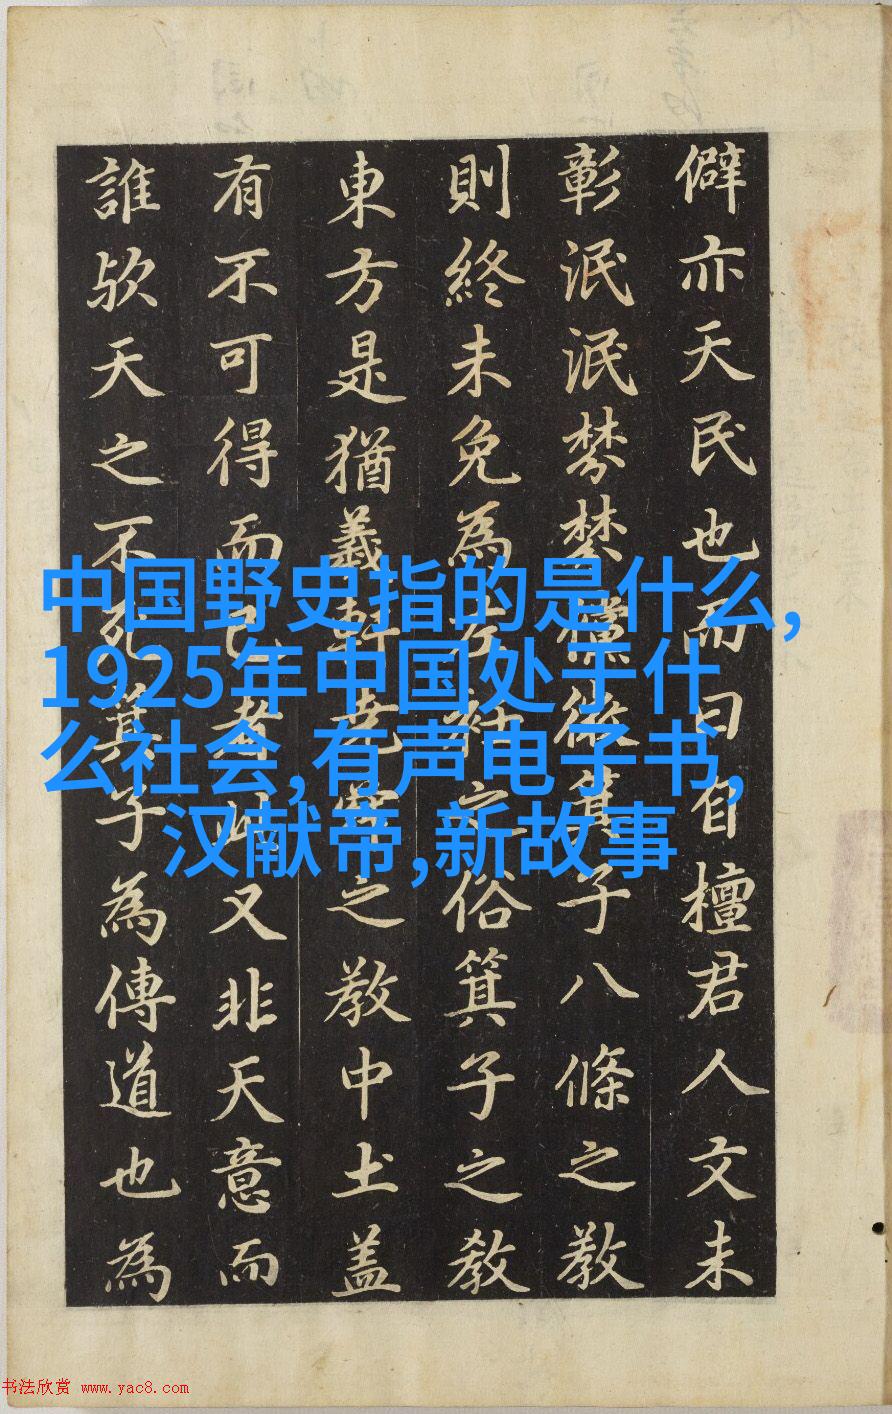 僻亦天民也而曰自檀君人文未
彰泯泯棼棼儻微箕子八條之教
則終未免為左衽之俗箕子之教
東方是猶羲軒堯舜之教中土盖
有不可得而已者此又非天意而
誰欤天之不死箕子為傳道也為
中国野史指的是什么,
1925年中国处于什
么社会,有声电子书,
汉献帝,新故事
书法欣赏 www.yac8.com